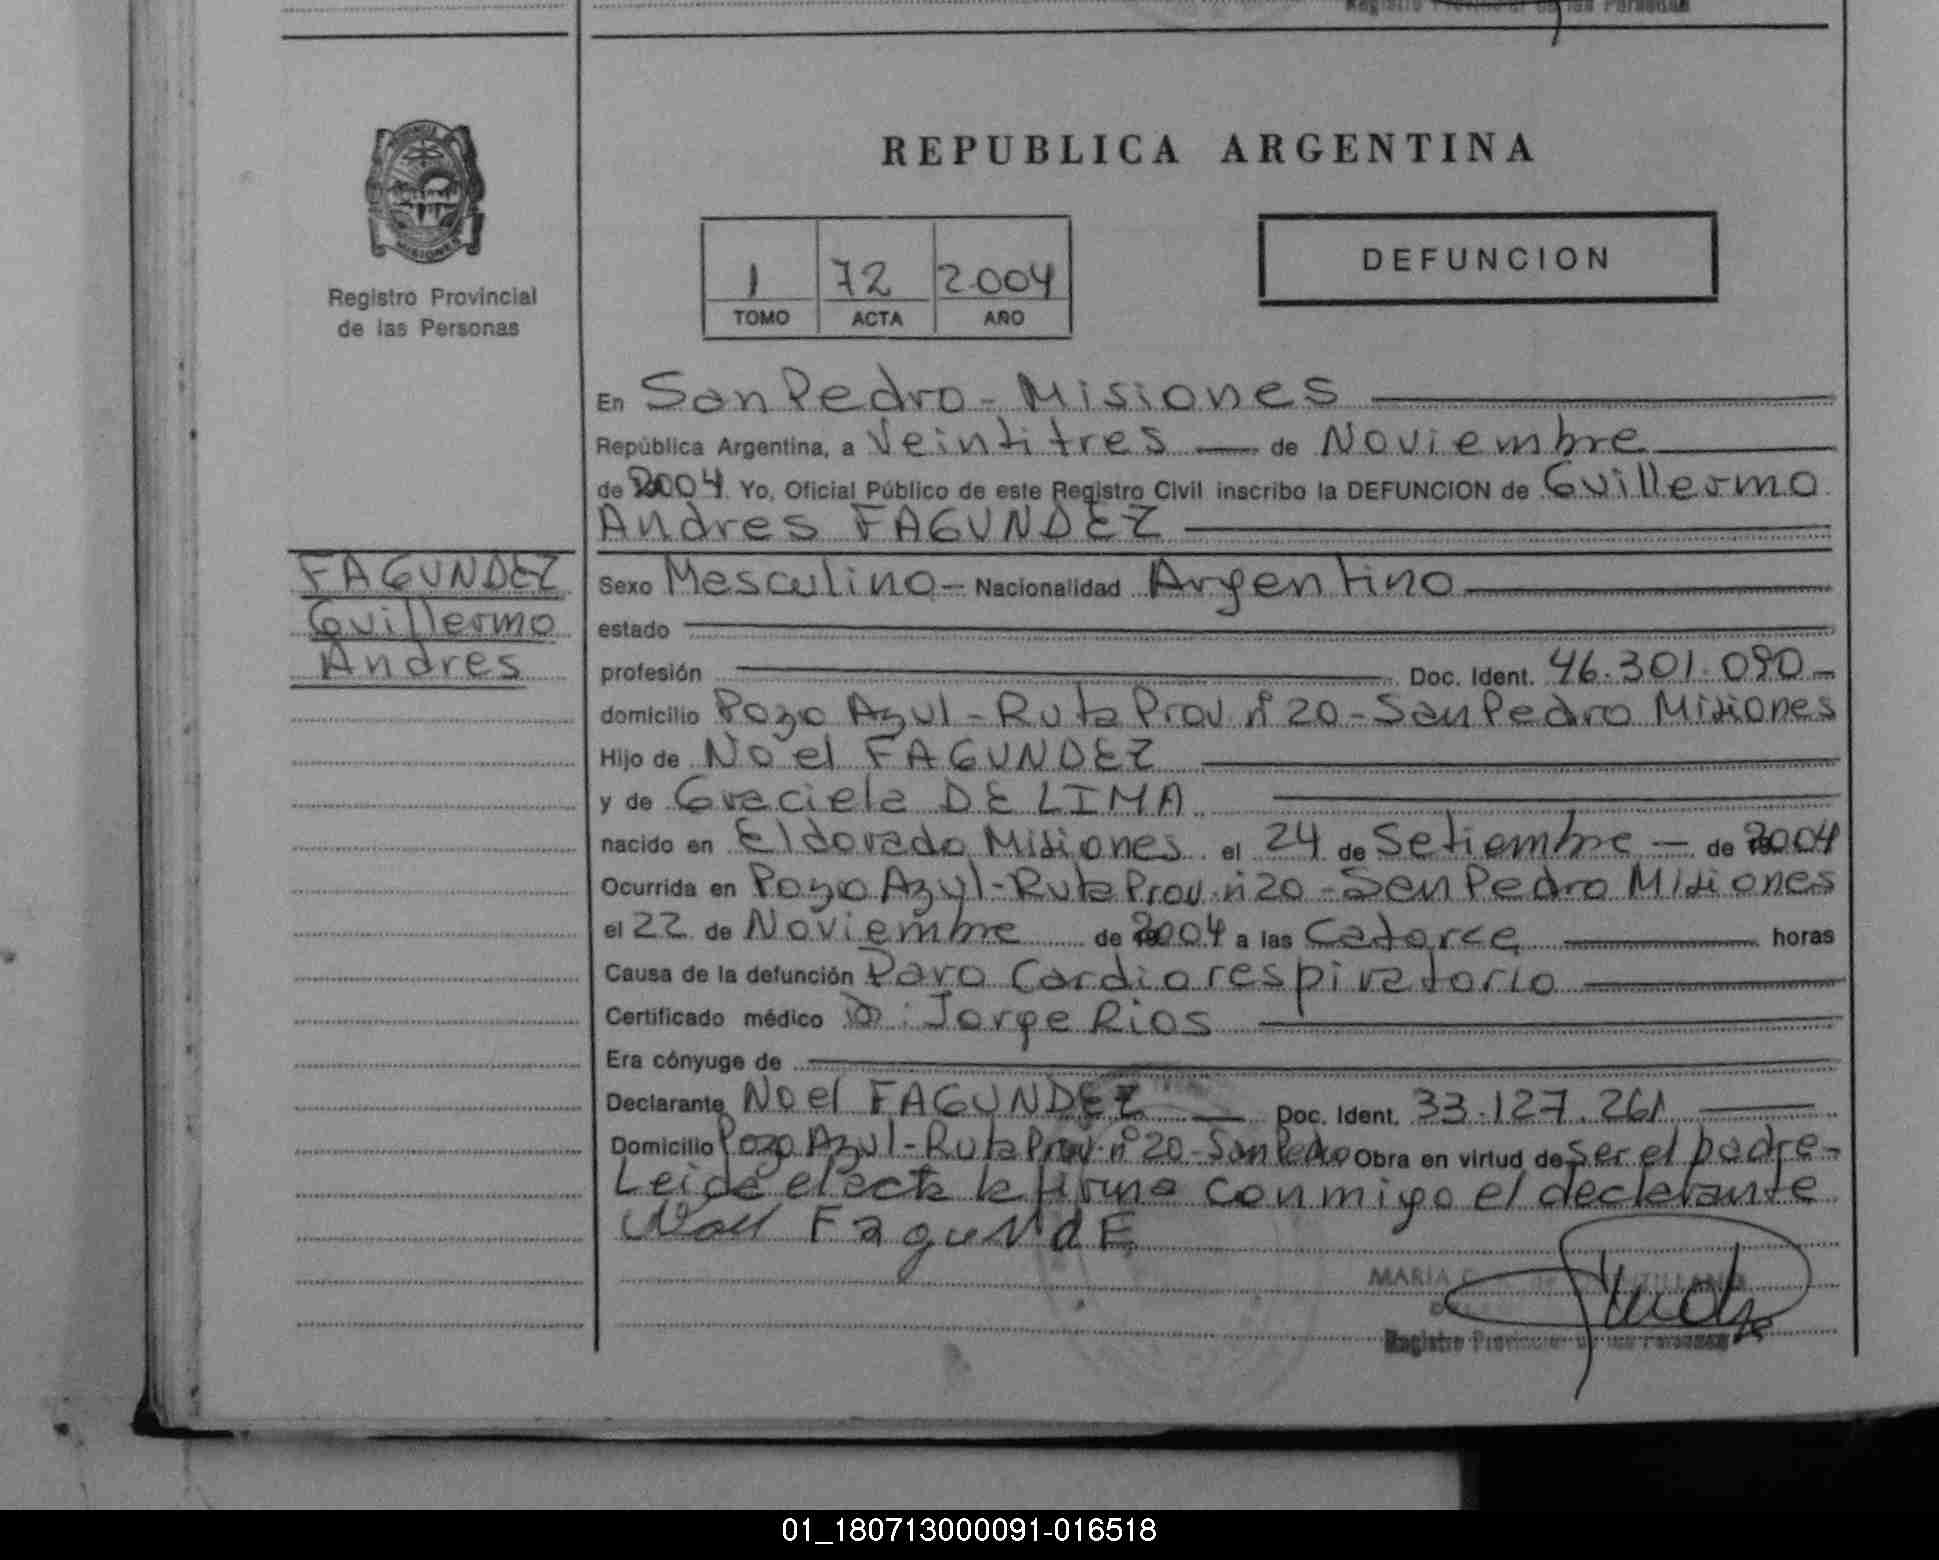 Registro Provincial de las Personas
REPUBLICA ARGENTINA
MISIONES
Registro Provincial
de las Personas
1 72 2004
TOMO ACTA AÑO
DEFUNCION
En San Pedro - Misiones
República Argentina, a Veintitres de Noviembre
de 2004. Yo, Oficial Público de este Registro Civil inscribo la DEFUNCION de Guillermo
Andres FAGUNDEZ
FAGUNDEZ
Guillermo
Andres
Sexo Mesculino - Nacionalidad Argentino
estado
profesión Doc. Ident. 46.301.090 -
domicilio Pozo Azul - Ruta Prov. nº 20 - San Pedro Misiones
Hijo de Noel FAGUNDEZ
y de Graciela DE LIMA
nacido en Eldorado Misiones el 24 de Setiembre - de 2004
Ocurrida en Pozo Azul - Ruta Prov. nº 20 - San Pedro Misiones
el 22 de Noviembre de 2004 a las Catorce horas
Causa de la defunción Paro Cardiorespiratorio
Certificado médico Dr. Jorge Rios
Era cónyuge de
Declarante Noel FAGUNDEZ Doc. Ident. 33.127.261
Domicilio Pozo Azul - Ruta Prov. nº 20 - San Pedro Obra en virtud de ser el padre -
Leida el acta la firma conmigo el declarante
Noel FaguNdE
MARIA
Registro Provincial de las Personas
01_180713000091-016518